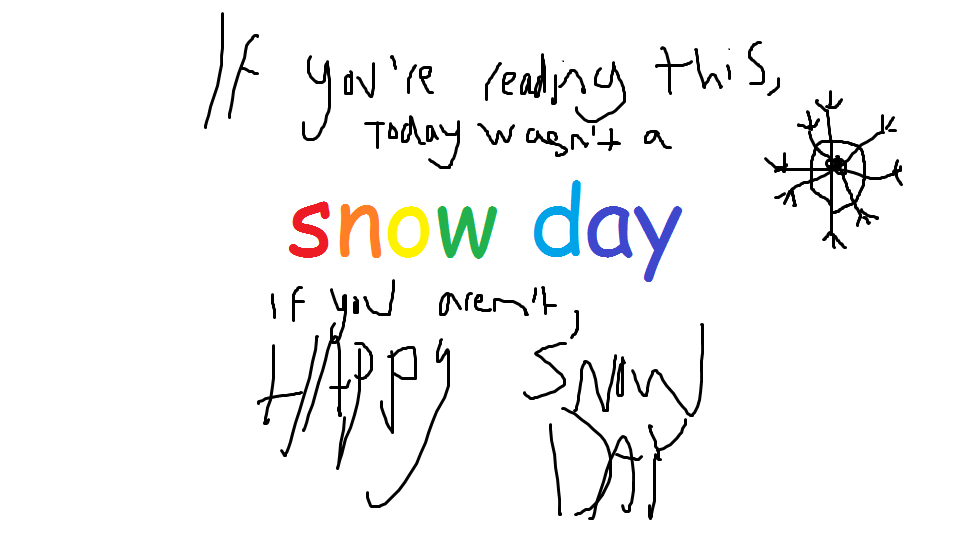 If you're reading this,
Today wasn't a
snow day
if you aren't,
HAPPY SNOW
DAY